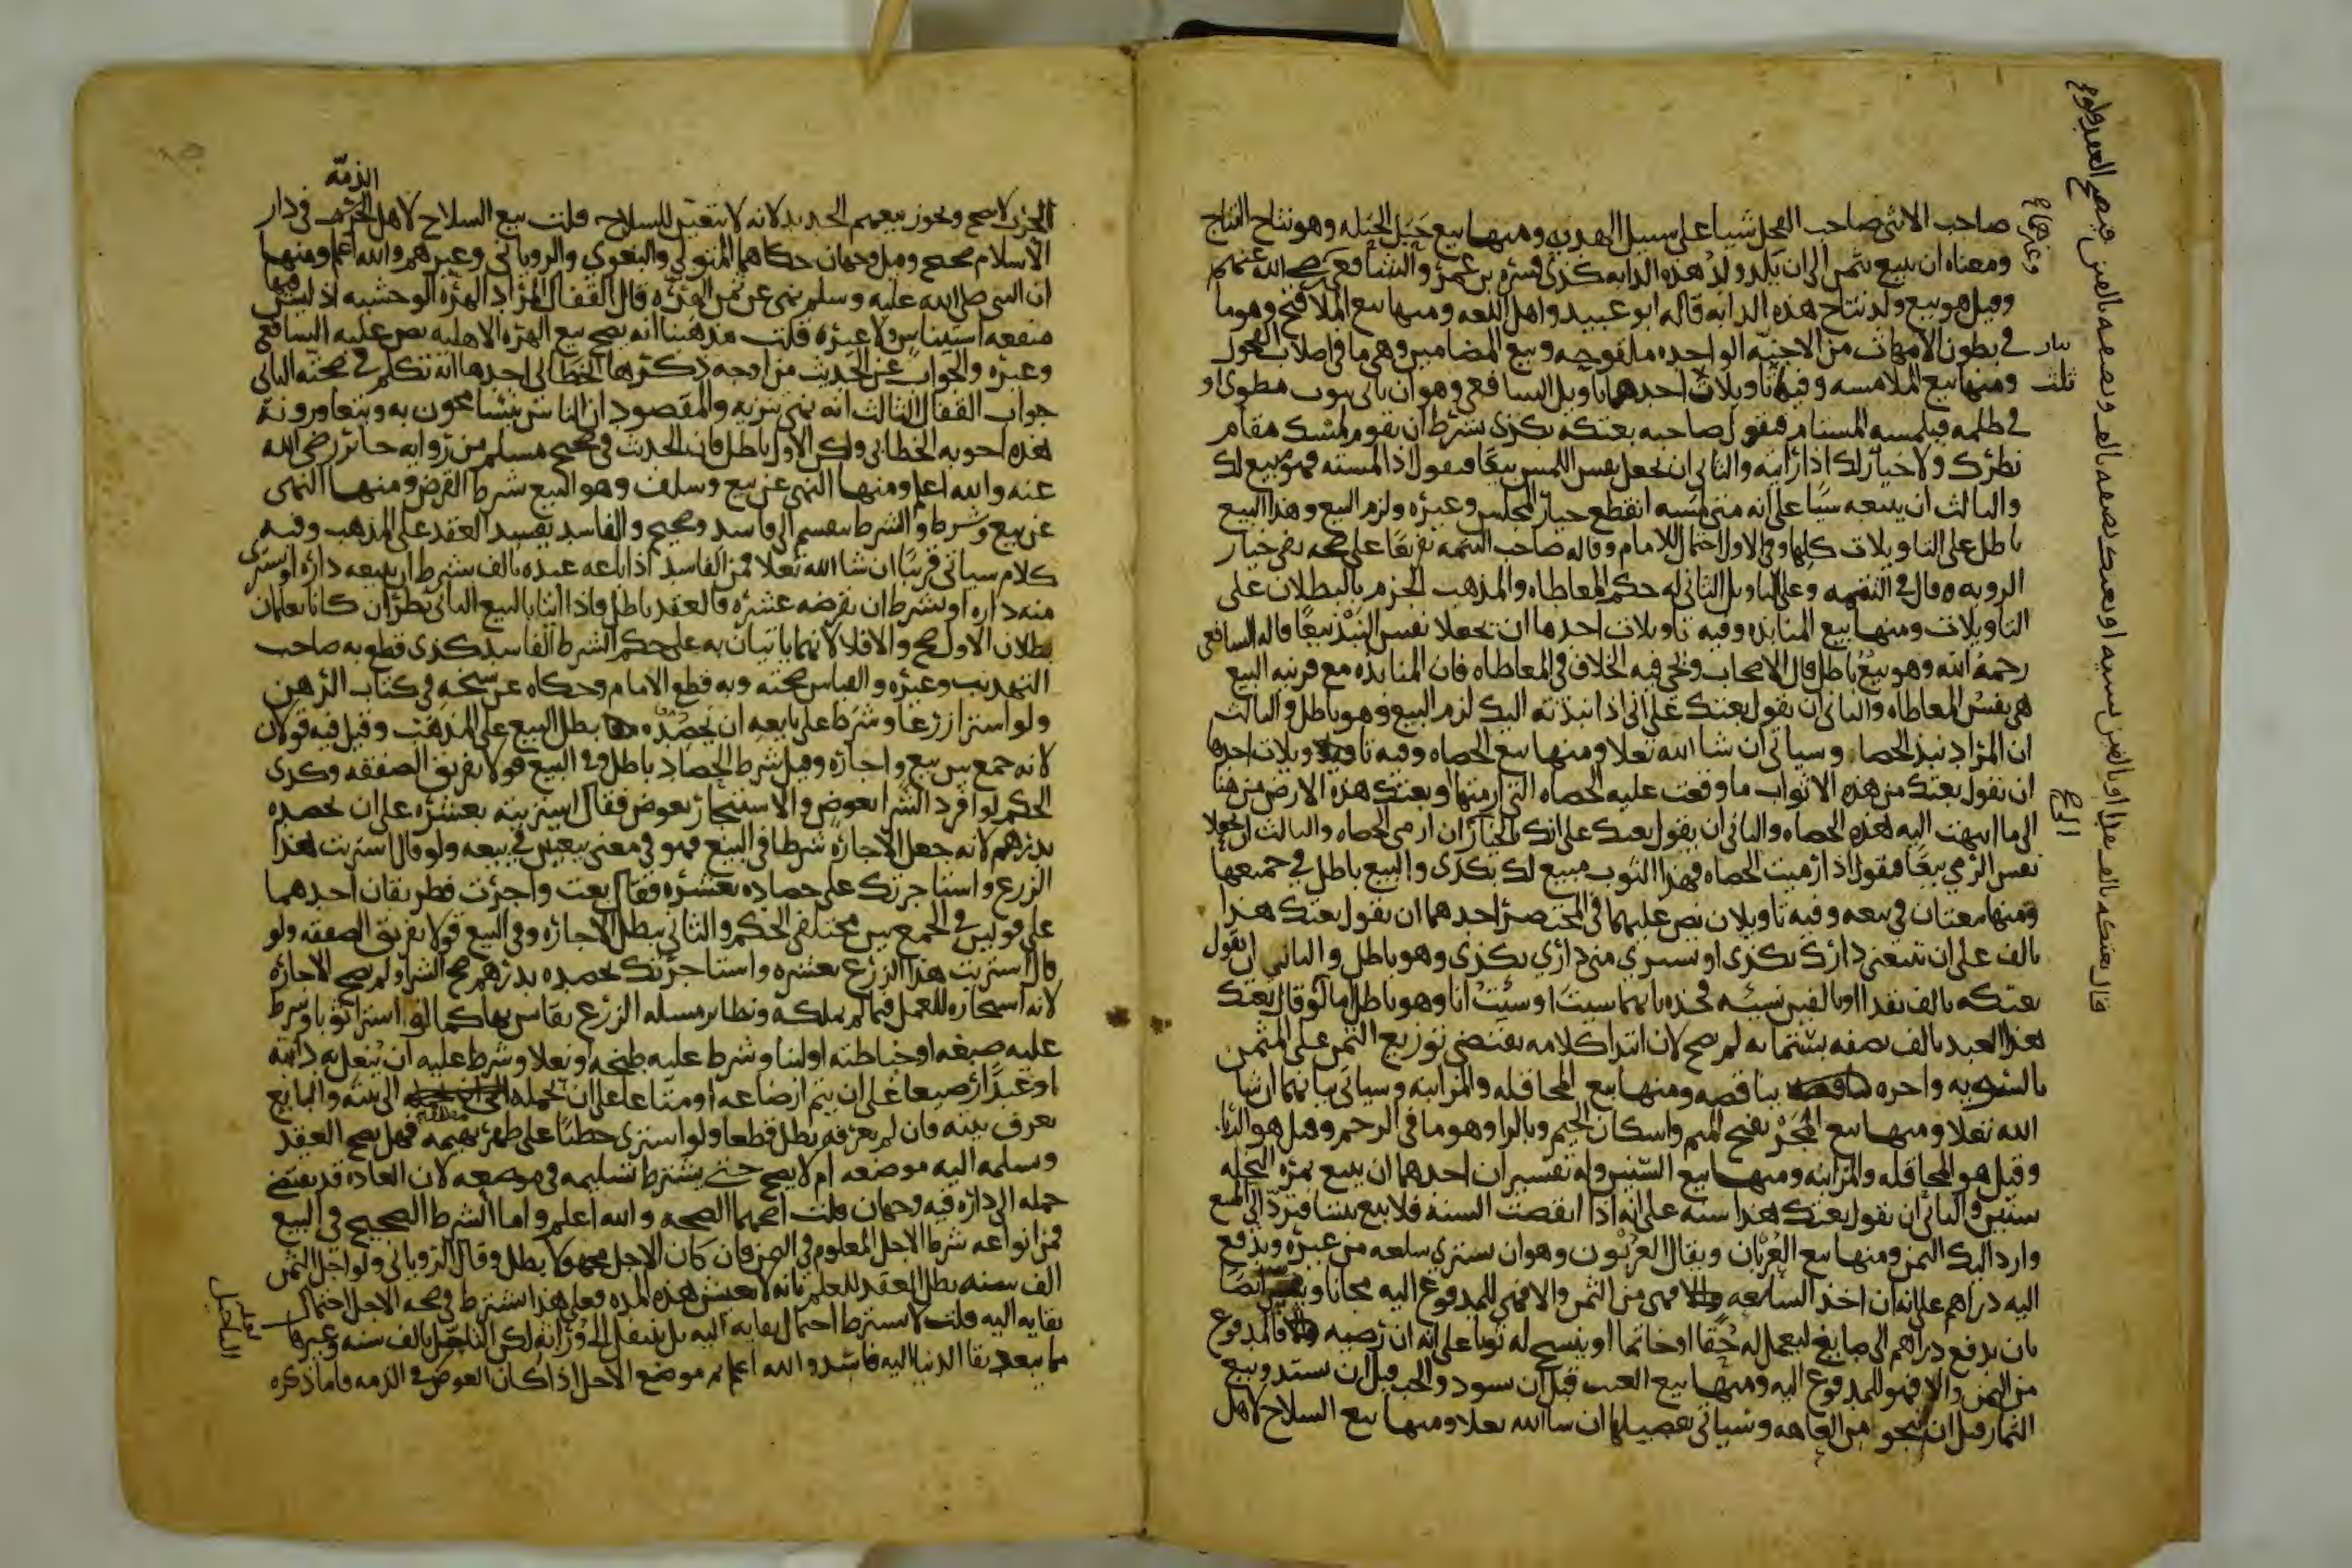 صاحب الانثى صاحب الفحل شيا على سبيل الهديه ومنها بيع حَبَل الحَبَله وهو نتاج النتاج
ومعناه ان يبيع بثمن الى ان يلد ولد هذه الدابه كذى فسره بن عمر والشافعى رضى الله عنهم
وغيرهما
وقيل هو بيع ولد نتاج هذه الدابه قاله ابو عبيد واهل اللغه ومنها بيع الملاقيح وهو ما
فى بطون الامهات من الاجنه الواحده ملقوحه وبيع المضامين وهى ما فى اصلاب الفحول
ومنها بيع الملامسه وفيه تاويلات احدها تاويل الشافعى وهو ان ياتى بثوب مطوى او
ثلث
فى ظلمه فيلمسه المستام فيقول صاحبه بعتكه بكذى بشرط ان يقوم لمسك مقام
نظرك ولا خيار لك اذا رايته والثانى ان يجعل نفس اللمس بيعا فيقول اذا لمسته فهو مبيع لك
والثالث ان يبيعه شيا على انه متى لمسه انقطع خيار المجلس وغيره ولزم البيع وهذا البيع
باطل على التاويلات كلها وفى الاول احتمال للامام وقاله صاحب التتمه تفريعا على صحه نفى خيار
الرويه وقال فى التتمه وعلى التاويل الثانى له حكم المعاطاه والمذهب الجزم بالبطلان على
التاويلات ومنها بيع المنابذه وفيه تاويلات احدها ان يجعلا نفس النبذ بيعا قاله الشافعى
رحمه الله وهو بيع باطل قال الاصحاب ويجى فيه الخلاف فى المعاطاه فان المنابذه مع قرينه البيع
هى نفس المعاطاه والثانى ان يقول بعتك على انى اذا نبذته اليك لزم البيع وهو باطل والثالث
ان المراد نبذ الحصا وسياتى ان شا الله تعلا ومنها بيع الحصاه وفيه تاويلات احدها
ان يقول بعتك من هذه الاثواب ما وقعت عليه الحصاه التى ارميها او بعتك هذه الارض من هنا
الى ما انتهت اليه هذه الحصاه والثانى ان يقول بعتك على انك بالخيار الى ان ارمى الحصاه والثالث ان يجعلا
نفس الرمى بيعا فيقول اذا رميت الحصاه فهذا الثوب مبيع لك بكذى والبيع باطل فى جميعها
ومنها بيعتان فى بيعه وفيه تاويلان نص عليهما فى المختصر احدهما ان يقول بعتك هذا
بالف على ان تبيعنى دارك بكذى او تشترى منى دارى بكذى وهو باطل والثانى ان يقول
بعتكه بالف نقدا او بالفين نسيه فخذه بايهما شيت او شيت انا وهو باطل اما لو قال بعتك
هذا العبد بالف نصفه بستمايه لم يصح لان ابتدا كلامه يقتضى توزيع الثمن على المثمن
بالسويه واخره يناقضه ومنها بيع المحاقله والمزابنه وسياتى بيانهما ان شا
الله تعلا ومنها بيع المَجْر بفتح الميم واسكان الجيم وبالرا وهو ما فى الرحم وقيل هو الربا
وقيل هو المحاقله والمزابنه ومنها بيع السنين وله تفسيران احدهما ان يبيع ثمره النخله
سنين والثانى ان يقول بعتك هذا سنه على انه اذا انقضت السنه فلا بيع بيننا فترد الى المبيع
وارد اليك الثمن ومنها بيع العُرْبان ويقال العربون وهو ان يشترى سلعه من غيره ويدفع
اليه دراهم على انه ان اخذ السلعه فهى من الثمن والا فهى للمدفوع اليه مجانا ويفسر ايضا
بان يدفع دراهم الى صايغ ليعمل له خفا او خاتما او ينسج له ثوبا على انه ان رضيه فالمدفوع
من الثمن والا فهو للمدفوع اليه ومنها بيع العنب قبل ان يسود والحب قبل ان يشتد وبيع
الثمار قبل ان تنجو من العاهه وسياتى تفصيلها ان شا الله تعلا ومنها بيع السلاح لاهل
الذمّه
الحرب لا يصح ويجوز بيعهم الحديد لانه لا يتعين للسلاح قلت بيع السلاح لاهل فى دار
الاسلام صحيح وقيل وجهان حكاهما المتولى والبغوى والرويانى وغيرهم والله اعلم ومنها
ان النبى صلى الله عليه وسلم نهى عن ثمن الهره قال القفال المراد الهره الوحشيه اذ ليس فيها
منفعه استيناس ولا غيره قلت مذهبنا انه يصح بيع الهره الاهليه نص عليه الشافعى
وغيره والجواب عن الحديث من اوجه ذكرها الخطابى احدها انه تكلم فى صحته الثانى
جواب القفال الثالث انه نهى تنزيه والمقصود ان الناس يتسامحون به ويتعاورونه
هذه اجوبه الخطابى ولكن الاول باطل فان الحديث فى صحيح مسلم من روايه جابر رضى الله
عنه والله اعلم ومنها النهى عن بيع وسلف وهو البيع بشرط القرض ومنها النهى
عن بيع وشرط والشرط ينقسم الى فاسد وصحيح والفاسد يفسد العقد على المذهب وفيه
كلام سياتى قريبا ان شا الله تعلا فمن الفاسد اذا باعه عبده بالف بشرط ان يبيعه داره او يشترى
منه داره او بشرط ان يقرضه عشره فالعقد باطل فاذا اتيا بالبيع الثانى نظر ان كانا يعلمان
بطلان الاول صح والا فلا لانهما ياتيان به على حكم الشرط الفاسد كذى قطع به صاحب
التهذيب وغيره والقياس صحته وبه قطع الامام وحكاه عن شيخه فى كتاب الرهن
ولو اشترا زرعا وشرط على بايعه ان يحصده بطل البيع على المذهب وقيل فيه قولان
لانه جمع بين بيع واجاره وقيل شرط الحصاد باطل وفى البيع قولا تفريق الصفقه وكذى
الحكم لو افرد الشرا بعوض والاستيجار بعوض فقال اشتريته بعشره على ان تحصده
بدرهم لانه جعل الاجاره شرطا فى البيع فهو فى معنى بيعتين فى بيعه ولو قال اشتريت هذا
الزرع واستاجرتك على حصاده بعشره فقال بعت واجرت فطريقان احدهما
على قولين فى الجمع بين مختلفى الحكم والثانى تبطل الاجاره وفى البيع قولا تفريق الصفقه ولو
قال اشتريت هذا الزرع بعشره واستاجرتك لحصده بدرهم صح الشرا ولم تصح الاجاره
لانه استيجاره للعمل فيما لم يملكه ونظاير مساله الزرع تقاس بها كما لو اشترا ثوبا وشرط
عليه صبغه او خياطته او لبنا وشرط عليه طبخه او نعلا وشرط عليه ان ينعل به دابته
او عبدا رضيعا على ان يتم ارضاعه او متاعا على ان يحمله الى بيته والبايع
يعرف بيته فان لم يعرفه بطل قطعا ولو اشترى حطبا على ظهر بهيمه فهل يصح العقد
وسلمه اليه موضعه ام لا يصح حتى يشترط تسليمه فى موضعه لان العاده قد تقتضى
حمله الى داره فيه وجهان قلت اصحهما الصحه والله اعلم واما الشرط الصحيح فى البيع
فمن انواعه شرط الاجل المعلوم فى الثمن فان كان الاجل مجهولا بطل وقال الرويانى ولو اجل الثمن
الف سنه بطل العقد للعلم بانه لا يعيش هذه المده فعلى هذا يشترط فى صحه الاجل احتمال
بقايه اليه قلت لا يشترط احتمال بقايه اليه بل ينتقل الى ورثته لكن التاجيل بالف سنه وغيرها
مما يبعد بقا الدنيا اليه فاسد والله اعلم ثم موضع الاجل اذا كان العوض فى الذمه فاما ذكره